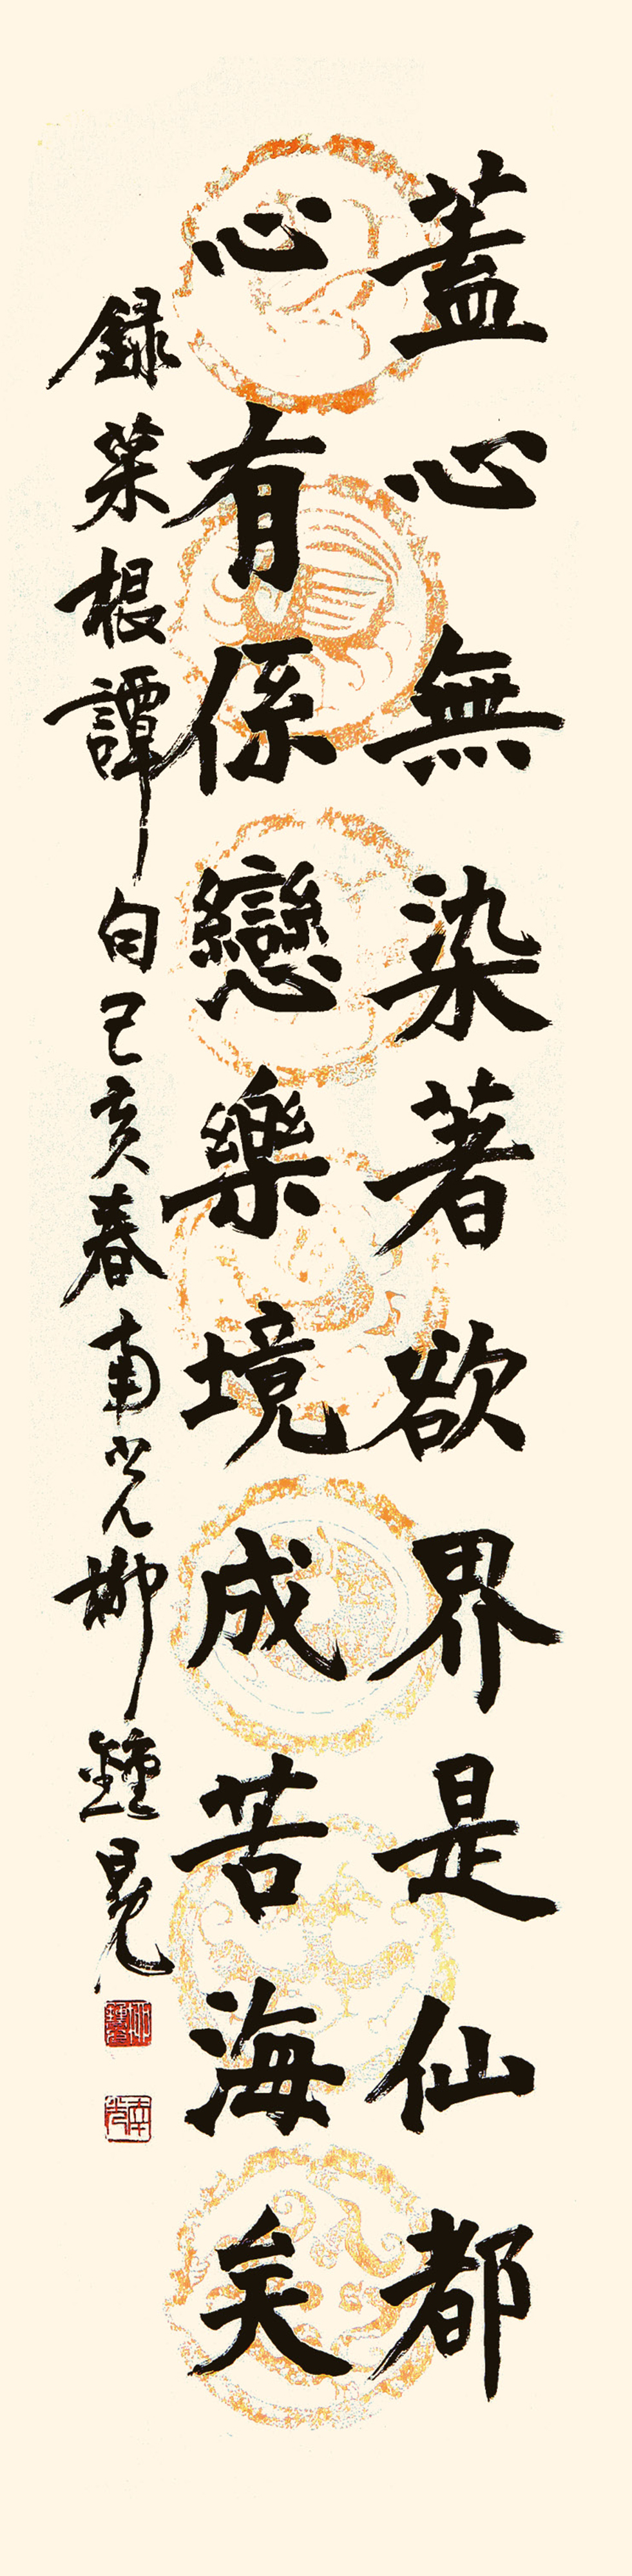 蓋心無染著欲界是仙都
心有係戀樂境成苦海矣
録菜根譚句己亥春南光柳鍾晃